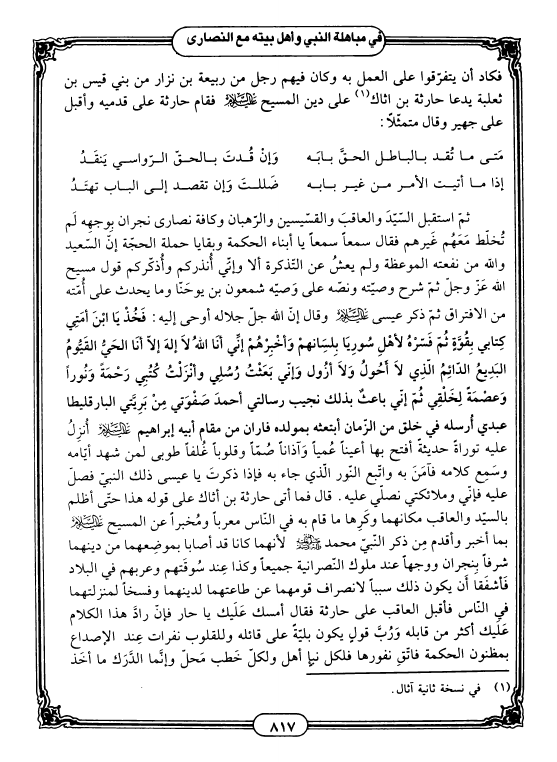 في مباهلة النبي وأهل بيته مع النصارى
فكاد أن يتفرّقوا على العمل به وكان فيهم رجل من ربيعة بن نزار من بني قيس بن
ثعلبة يدعا حارثة بن اثاك(١) على دين المسيح عليه السلام فقام حارثة على قدميه وأقبل
على جهير وقال متمثّلاً:
مَتـى ما تُقـد بالباطـل الحقَّ يابَـه وَإنْ قُـدتَ بـالحـقّ الـرّواسـي يَنقَـدُ
إذا ما أتيتَ الأمـر مـن غيـر بـابـه ضَللـتَ وَإن تقصـد إلـى البـاب تهتَـدُ
ثمّ استقبل السيّدَ والعاقبَ والقسّيسين والرّهبان وكافة نصارى نجران بوجهِه لَم
تُخلَط مَعَهُم غَيرهم فقال سمعاً سمعاً يا أبناء الحكمة وبقايا حملة الحجّة إنَّ السّعيد
والله من نفعته الموعظة ولم يعشُ عن التّذكرة ألا وإنّي أُنذركم وأُذكّركم قول مسيح
الله عَزّ وجلّ ثمّ شرح وصيّته ونصّه على وَصيّه شمعون بن يوحَنّا وما يحدث على أُمّته
من الافتراق ثمّ ذكر عيسى عليه السلام وقال إنّ الله جلّ جلاله أوحى إليه: فَخُذْ يَا ابْنَ أمَتِي
كِتابي بِقُوَّةٍ ثُمَّ فَسِّرْهُ لأهْلِ سُورِيَا بِلِسانِهِمْ وَأخْبِرْهُمْ إنّي أنَا اللهُ لاَ إلهَ إلاَّ أنَا الحَيُّ القَيُّومُ
البَدِيعُ الدّائِمُ الَّذِي لاَ أحُولُ وَلاَ أزُولُ وَإنّي بَعَثْتُ رُسُلِي وَأنْزَلْتُ كُتُبِي رَحْمَةً وَنُوراً
وَعِصْمَةً لِخَلْقِي ثُمَّ إنّي باعثٌ بذلك نجيب رسالتي أحمدَ صَفْوَتي مِنْ بَريَّتي البارقليطا
عبدي أُرسله في خلق من الزّمان أبتعثه بمولده فاران من مقام أبيه إبراهيم عليه السلام أُنزِلُ
عليه توراةً حديثةً أفتح بها أعيناً عُمياً وَآذاناً صُمّاً وقلوباً غُلفاً طوبى لمن شهد أيّامه
وسَمِع كلامه فآمَنَ به واتّبع النّور الّذي جاء به فإذا ذكرتَ يا عيسى ذلك النبيّ فصلّ
عليه فإنّي وملائكتي نصلّي عليه. قال فما أتى حارثة بن أثاك على قوله هذا حتّى أظلم
بالسيّد والعاقب مكانهما وكَرِها ما قام به في النّاس معرباً ومُخبراً عن المسيح عليه السلام
بما أخبر وأقدم مِن ذكر النّبيّ محمد ﷺ لأنهما كانا قد أصابا بموضعهما من دينهما
شرفاً بِنجران ووجهاً عند ملوك النّصرانية جميعاً وكذا عند سُوقَتهم وعربهم في البلاد
فَأشفَقا أن يكون ذلك سبباً لانصراف قومهما عن طاعتهما لدينهما وفسخاً لمنزلتهما
في النّاس فأقبل العاقب على حارثة فقال أمسك عَليَك يا حار فإنّ رادَّ هذا الكلام
عَليك أكثر من قابله وَرُبَّ قولٍ يكون بليّة على قائله وللقلوب نفرات عند الإصداع
بمظنون الحكمة فاتّقِ نفورها فلكل نبإٍ أهل ولكلّ خَطب مَحلّ وإنّما الدَّرَك ما أخذ
(١) في نسخة ثانية آثال.
٨١٧